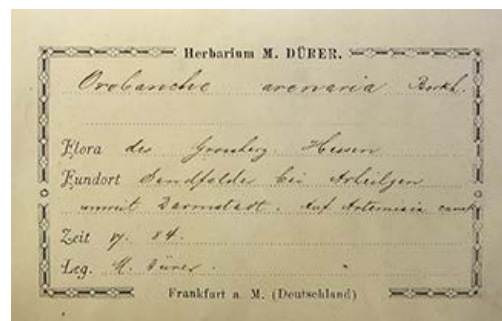 Herbarium M. DÜRER.
Orobanche arenaria Borkh.
Flora des Grossherz. Hessen
Fundort Sandfelder bei Arheilgen
unweit Darmstadt. Auf Artemisia camp
Zeit 7. 84.
Leg. M. Dürer.
Frankfurt a. M. (Deutschland)